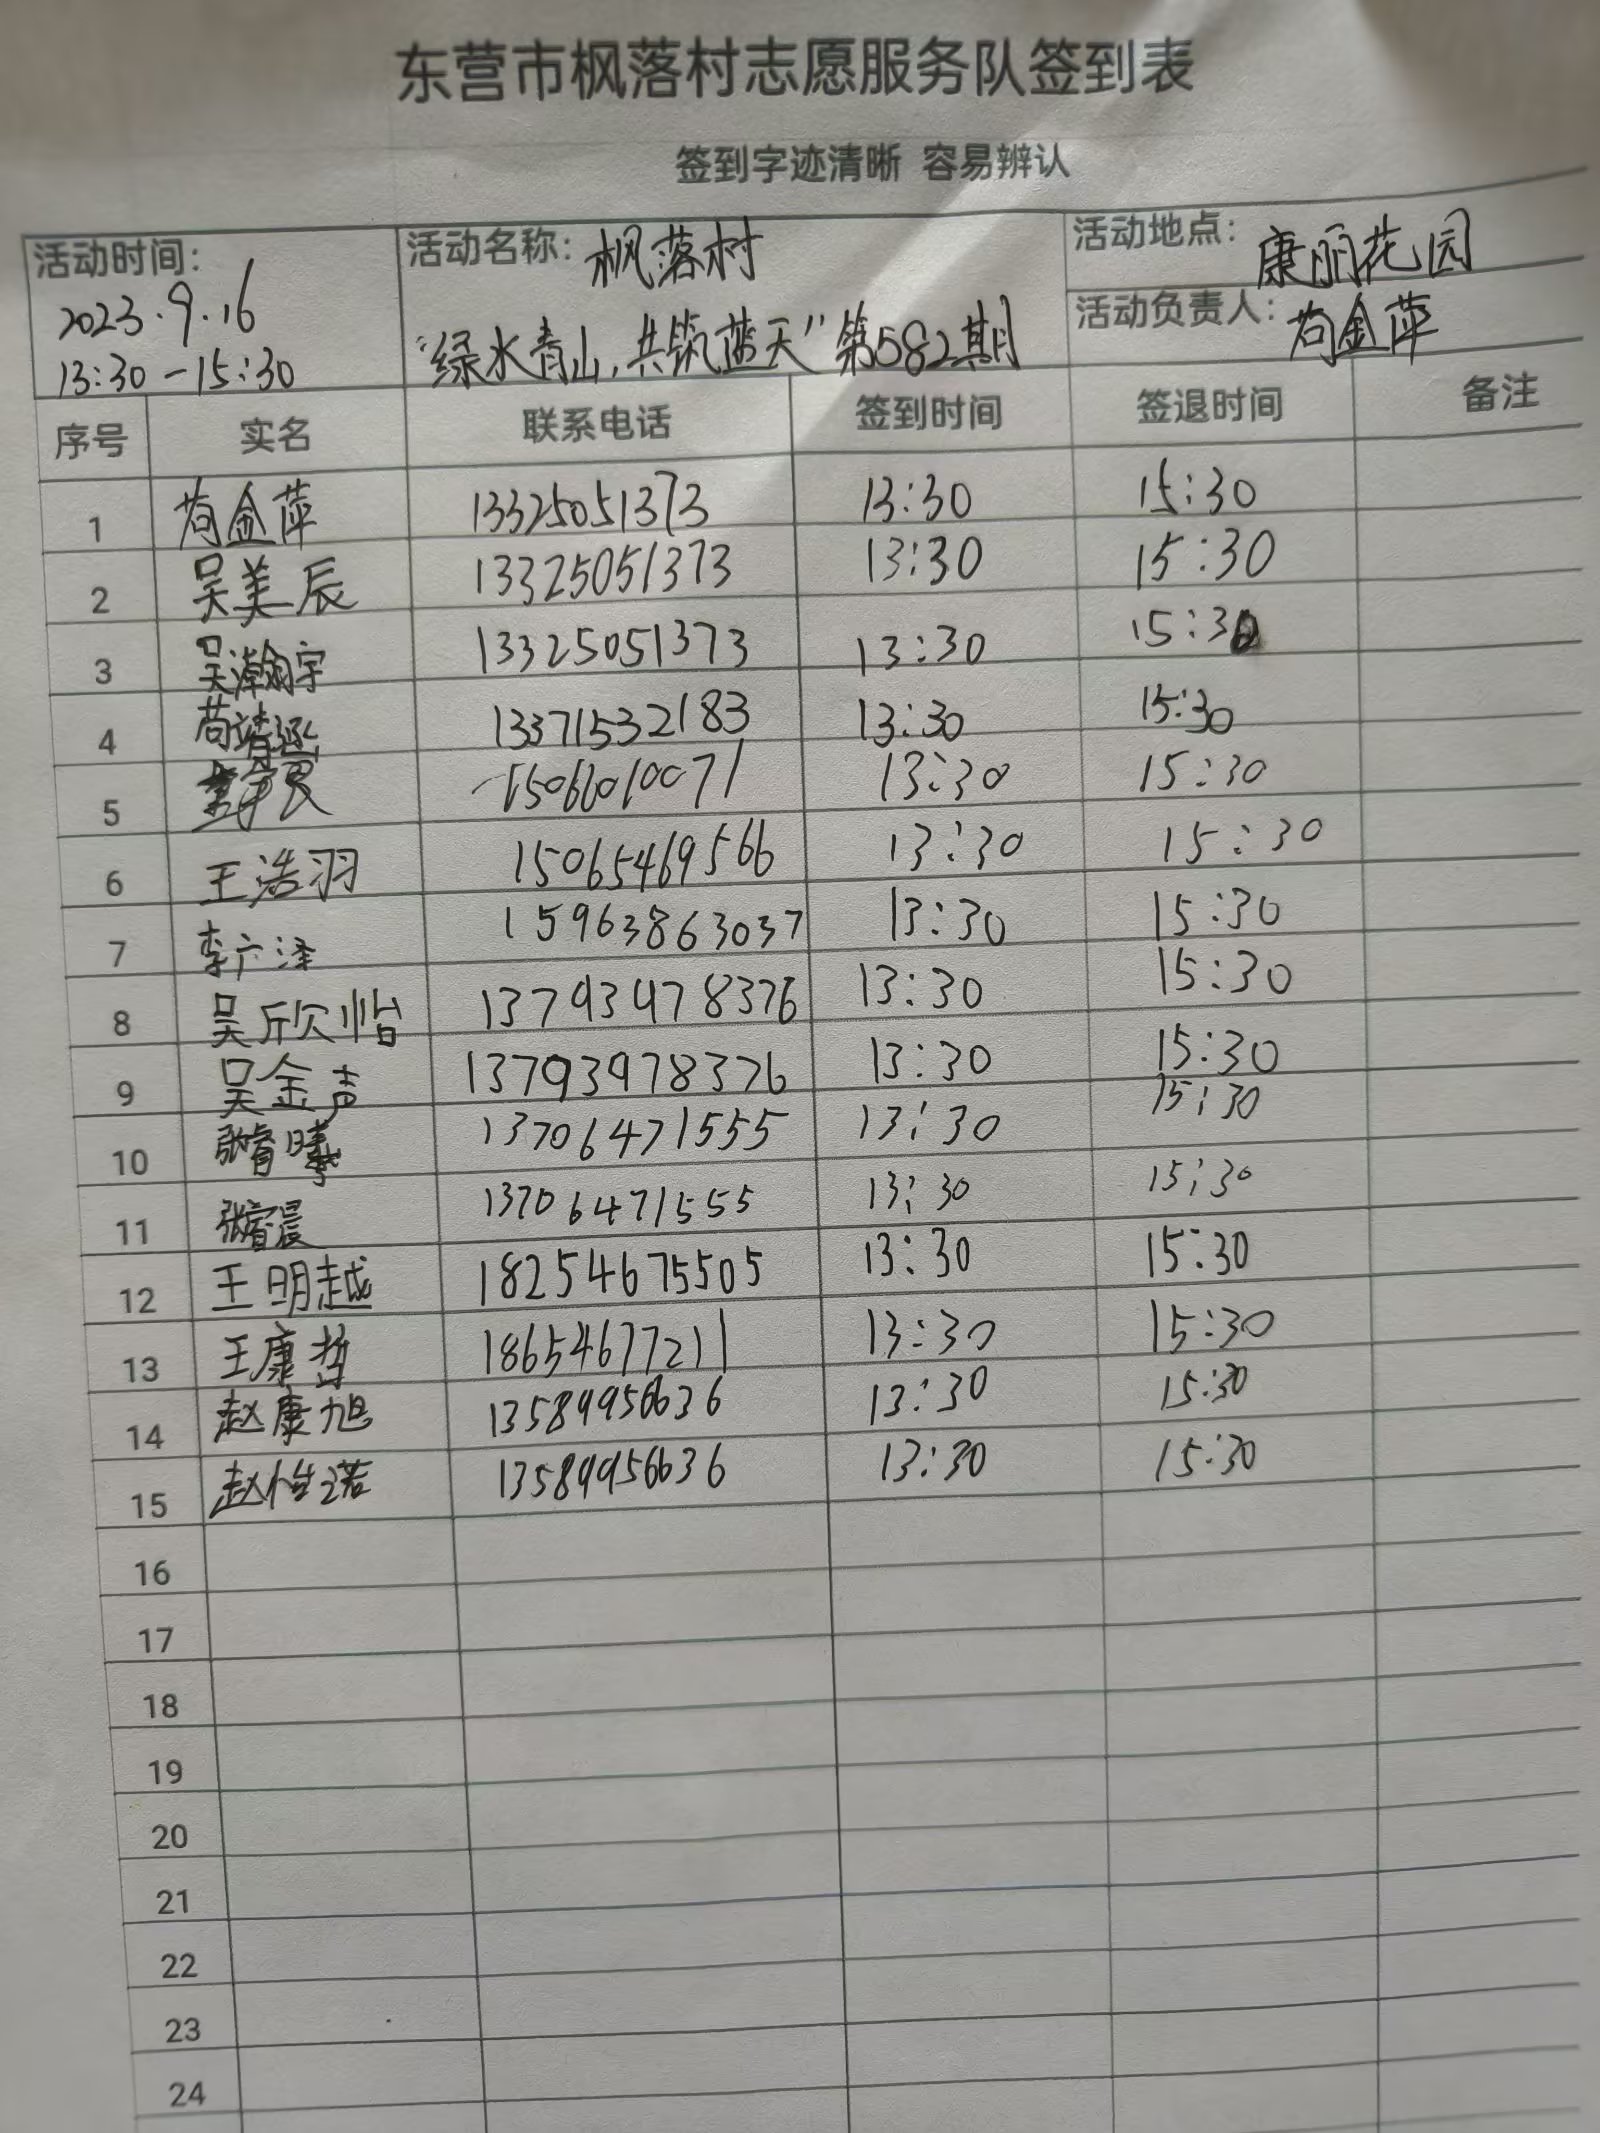 东营市枫落村志愿服务队签到表
签到字迹清晰 容易辨认
活动时间: 2023.9.16 13:30-15:30
活动名称: 枫落村
“绿水青山,共筑蓝天”第582期
活动地点: 康丽花园
活动负责人: 苟金萍
序号 实名 联系电话 签到时间 签退时间 备注
1 苟金萍 13325051373 13:30 15:30
2 吴美辰 13325051373 13:30 15:30
3 吴瀚宇 13325051373 13:30 15:30
4 苟靖涵 13371532183 13:30 15:30
5 15066010071 13:30 15:30
6 王浩羽 15065469566 13:30 15:30
7 李广泽 15963863037 13:30 15:30
8 吴欣怡 13793978376 13:30 15:30
9 吴金声 13793978376 13:30 15:30
10 张睿曦 13706471555 13:30 15:30
11 张睿晨 13706471555 13:30 15:30
12 王明越 18254675505 13:30 15:30
13 王康哲 18654677211 13:30 15:30
14 赵康旭 13589956636 13:30 15:30
15 赵怡诺 13589956636 13:30 15:30
16
17
18
19
20
21
22
23
24